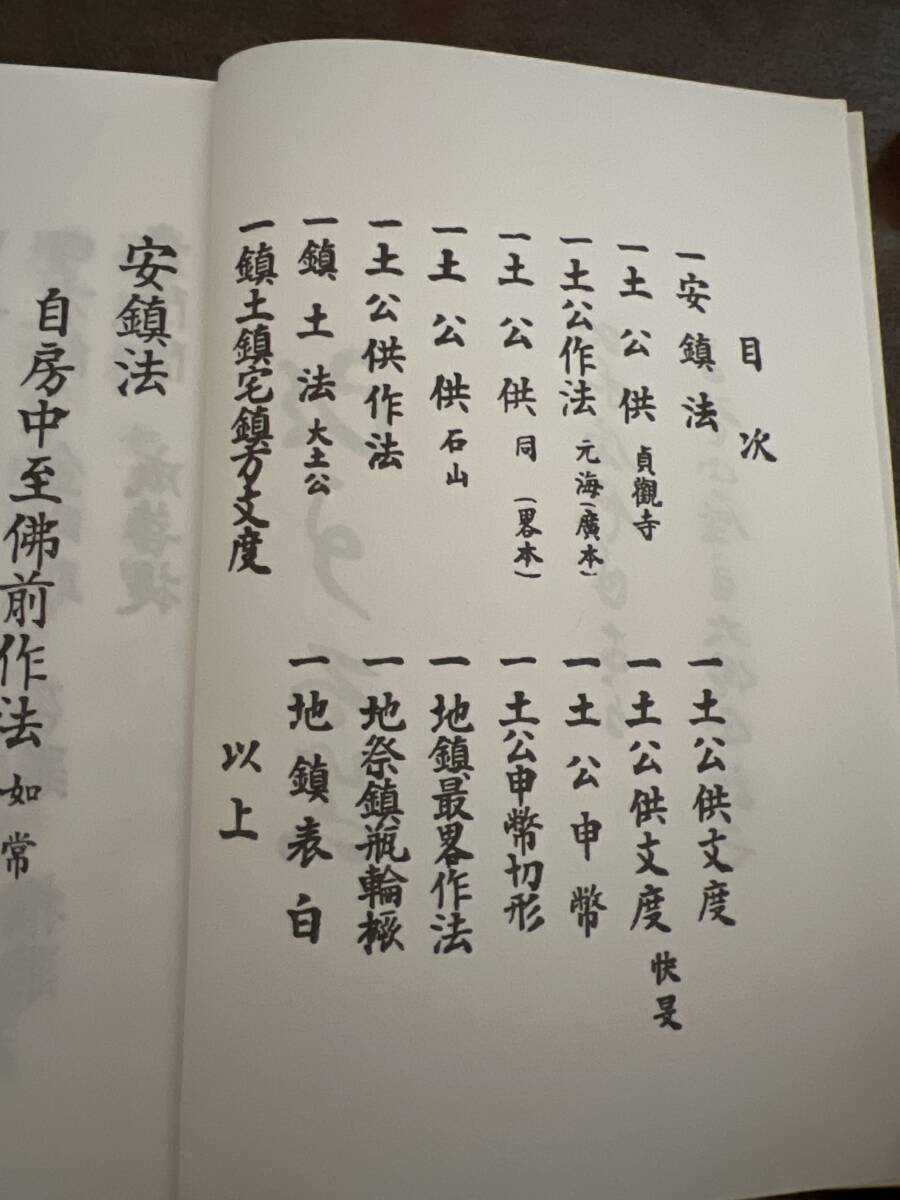 目次
一安鎮法
一土公供 貞觀寺
一土公作法 元海(廣本)
一土公供 同(畧本)
一土公供 石山
一土公供作法
一鎮土法 大土公
一鎮土鎮宅鎮方支度
一土公供支度
一土公供支度 快旻
一土公申幣
一土公申幣切形
一地鎮最畧作法
一地祭鎮瓶輪橛
一地鎮表白
以上
安鎮法
自房中至佛前作法 如常